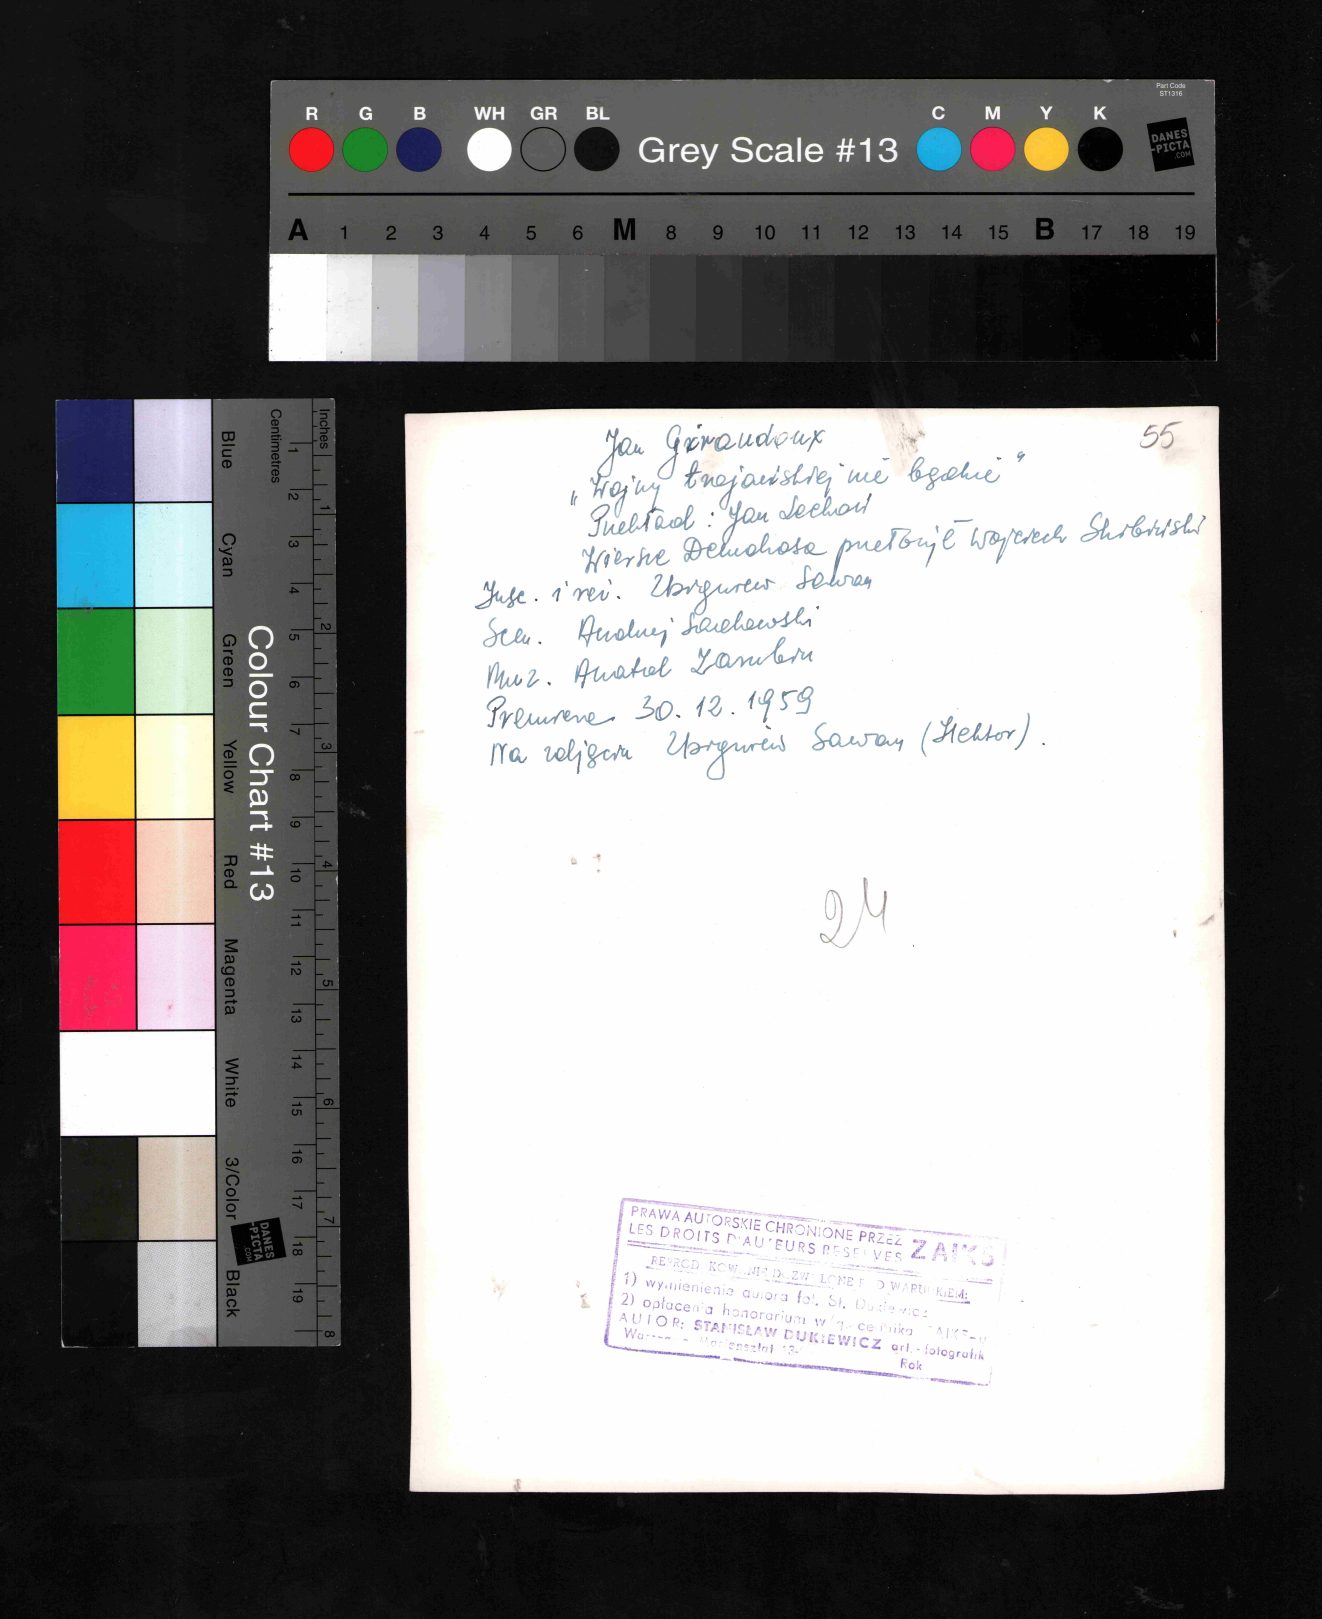 Part Code
ST1316
R G B WH GR BL Grey Scale #13 C M Y K
DANES
-PICTA
.COM
A 1 2 3 4 5 6 M 8 9 10 11 12 13 14 15 B 17 18 19
Colour Chart #13
Blue Cyan Green Yellow Red Magenta White 3/Color Black
Centimetres
1 2 3 4 5 6 7 8 9 10 11 12 13 14 15 16 17 18 19
Inches
1 2 3 4 5 6 7 8
DANES
-PICTA
.COM
55
Jan Giraudoux
„Wojny trojańskiej nie będzie"
Przekład: Jan Lechoń
Wiersze Demokosa przełożył Wojciech
Insc. i reż. Zbigniew Sawan
Scen. Andrzej Sadowski
Muz. Anatol Zarubin
Premiera 30.12.1959
Na zdjęciu Zbigniew Sawan (Hektor).
24
PRAWA AUTORSKIE CHRONIONE PRZEZ ZAIKS
LES DROITS D'AUTEURS RESERVES
1) wymienienia autora fot. St. Dukiewicz
2) opłacenia honorarium
AUTOR: STANISŁAW DUKIEWICZ art.-fotografik
Rok